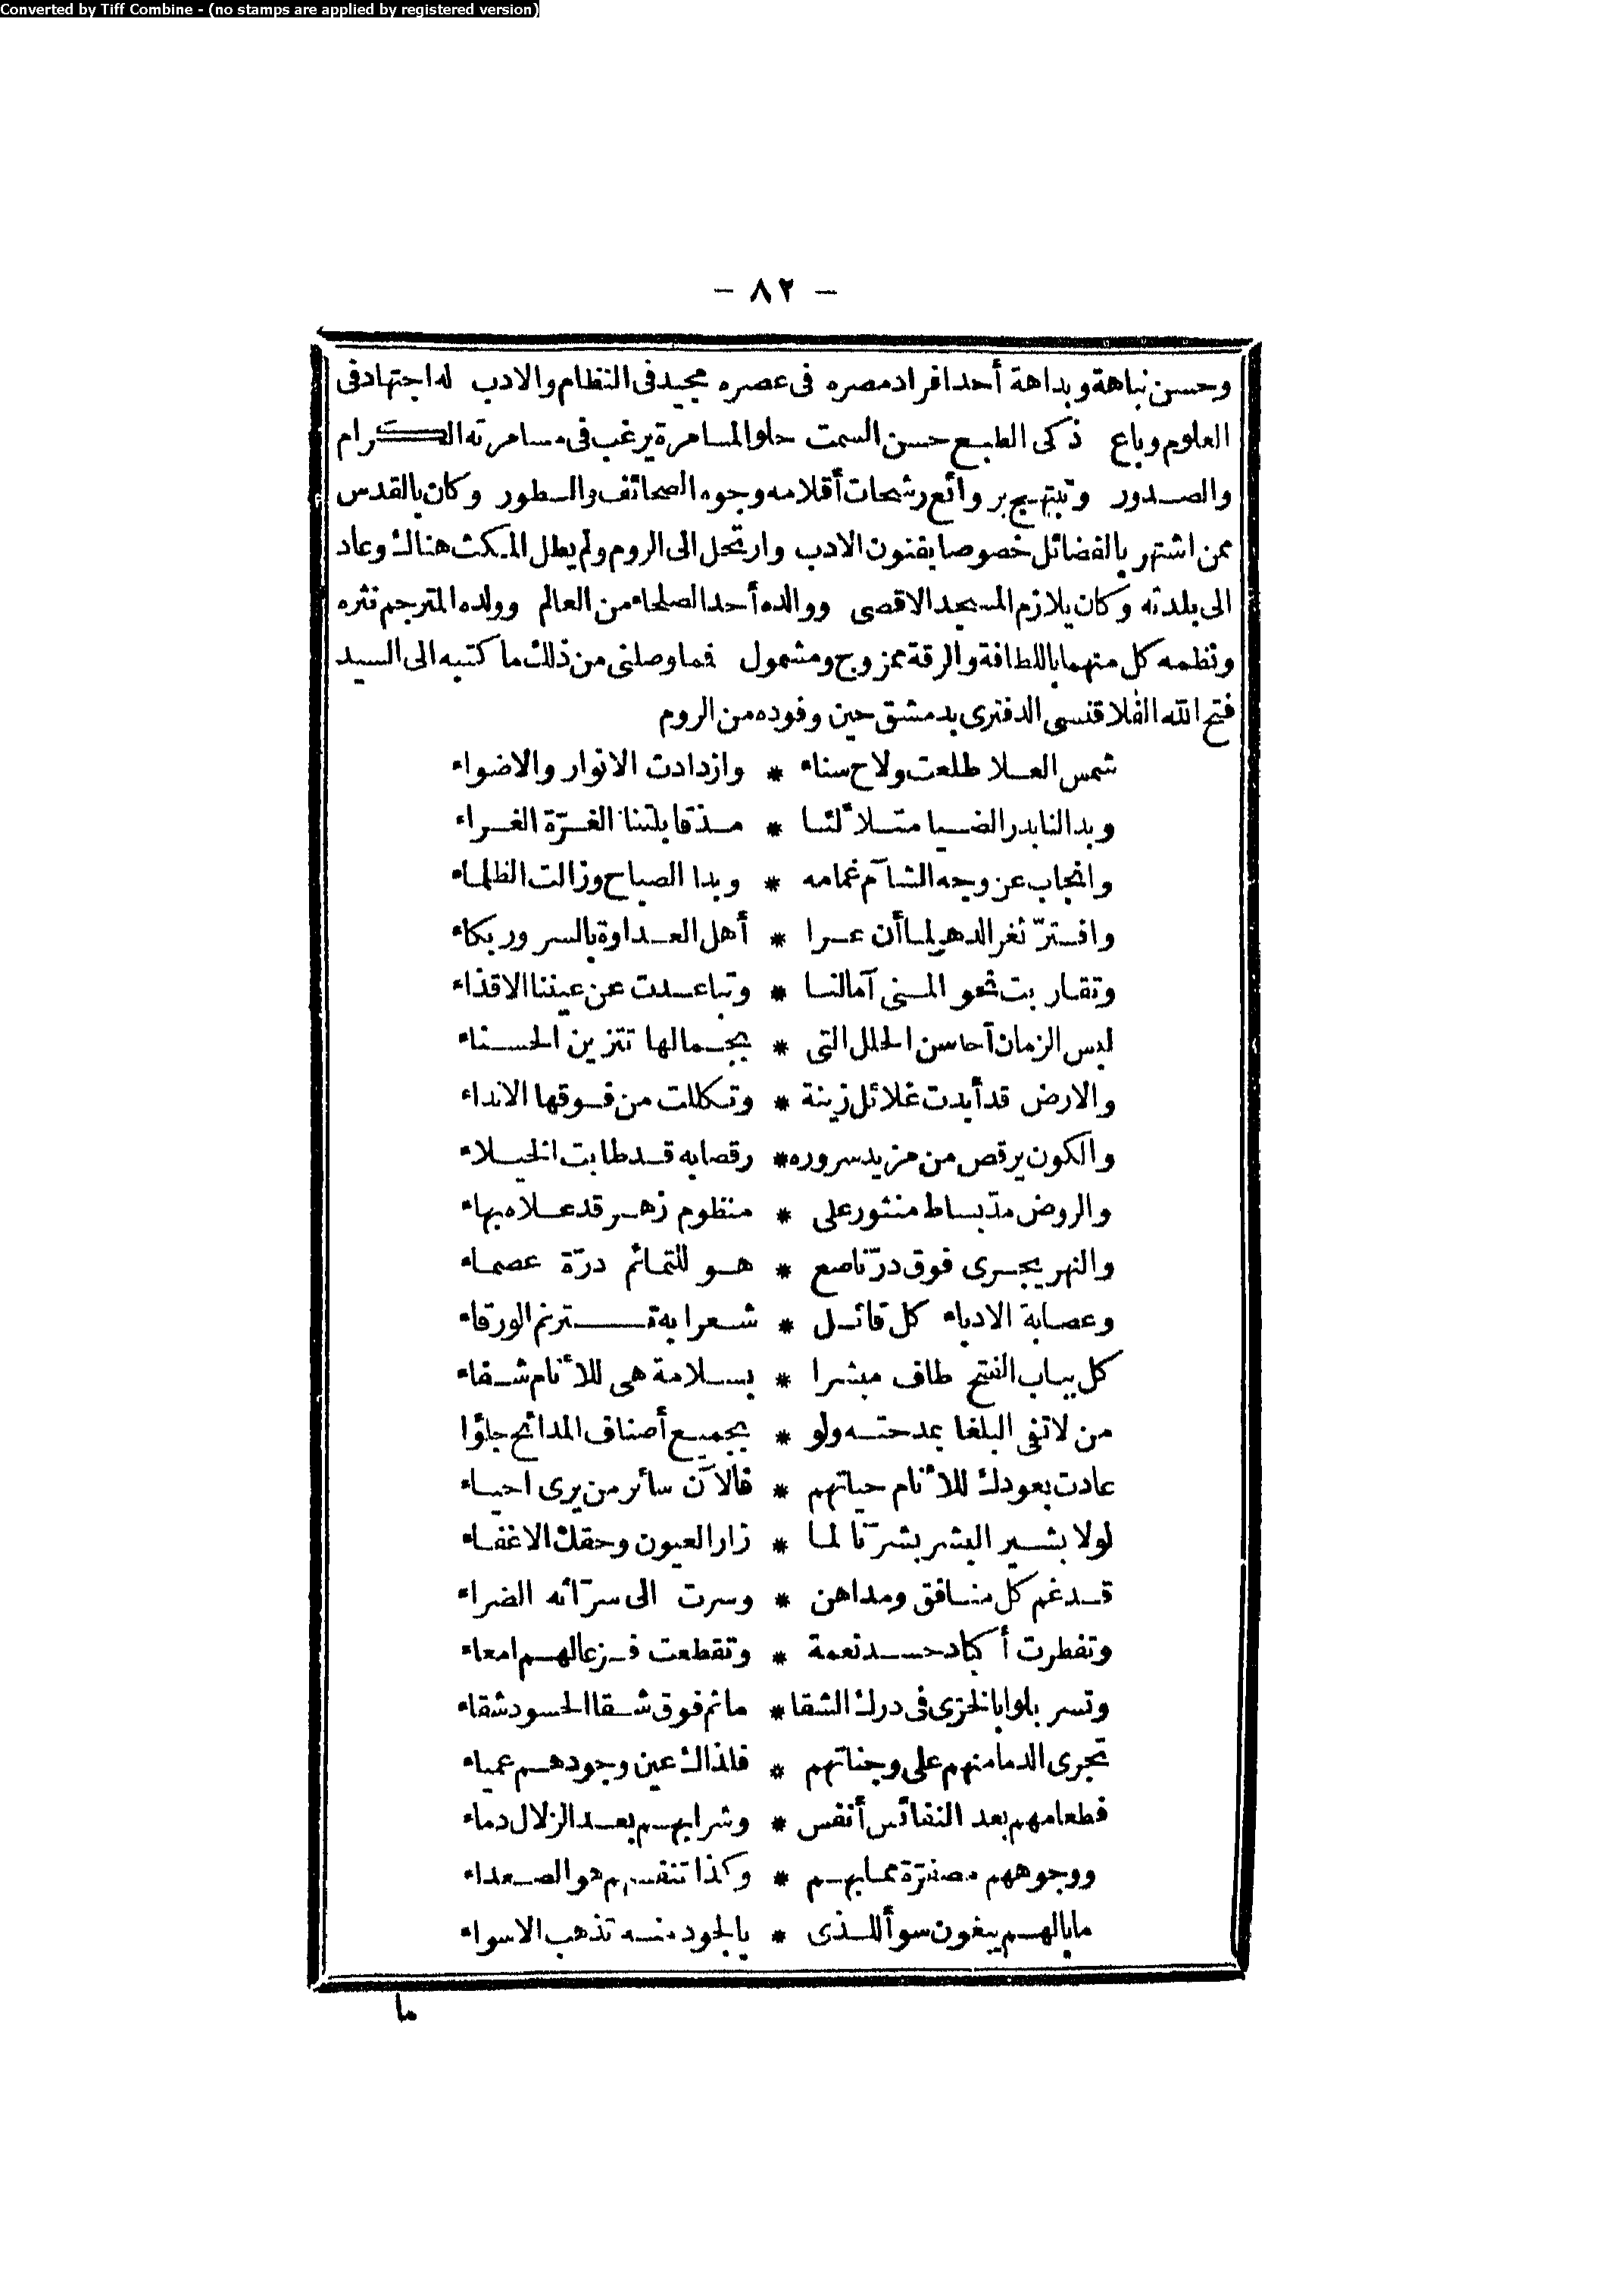 Converted by Tiff Combine - (no stamps are applied by registered version)
- ٨٢ -
وحسن نباهة وبداهة أحد افراد مصره فى عصره مجيد فى النظام والادب له اجتهاد فى
العلوم وباع ذكى الطبع حسن السمت حلو المسامرة يرغب فى مسامرته الكرام
والصدور وتبتهج بروائع رشحات أقلامه وجوه الصحائف والسطور وكان بالقدس
ممن اشتهر بالفضائل خصوصا بفنون الادب وارتحل الى الروم ولم يطل المكث هناك وعاد
الى بلدته وكان يلازم المسجد الاقصى ووالده أحد الصلحاء من العالم وولده المترجم نثره
ونظمه كل منهما باللطافة والرقة ممزوج ومشمول فما وصلنى من ذلك ما كتبه الى السيد
فتح الله الفلاقنسى الدفترى بدمشق حين وفوده من الروم
شمس العلا طلعت ولاح سناء * وازدادت الانوار والاضواء
وبدا لنا بدر الضيا متلألئا * مذ قابلتنا الغرّة الغراء
وانجاب عن وجه الشآم غمامه * وبدا الصباح وزالت الظلماء
وافترّ ثغر الدهر لما أن عرا * أهل العداوة بالسرور بكاء
وتقاربت نحو المنى آمالنا * وتباعدت عن عيننا الاقذاء
لبس الزمان أحاسن الحلل التى * بجمالها تتزين الحسناء
والارض قد أبدت غلائل زينة * وتكللت من فوقها الانداء
والكون يرقص من مزيد سروره * رقصا به قد طابت الخيلاء
والروض مدّ بساط منثور على * منظوم زهر قد علاه بهاء
والنهر يجرى فوق درّ ناصع * هو للتمائم درّة عصماء
وعصابة الادباء كل قائل * شعرا به تترنم الورقاء
كل بباب الفتح طاف مبشرا * بسلامة هى للأنام شفاء
من لا تفى البلغا بمدحته ولو * بجميع أصناف المدائح جاؤا
عادت بعودك للأنام حياتهم * فالآن سائر من يرى احياء
لولا بشير البشر بشرنا لما * زار العيون وحقك الاغفاء
قد غم كل منافق ومداهن * وسرت الى سرّائه الضراء
وتفطرت أكباد حسد نعمة * وتقطعت فزعا لهم امعاء
وتسربلوا بالخزى فى درك الشقا * ما ثم فوق شقا الحسود شقاء
تجرى الدما منهم على وجناتهم * فلذاك عين وجودهم عمياء
فطعامهم بعد النفائس أنفس * وشرابهم بعد الزلال دماء
ووجوههم مصفرّة مما بهم * وكذا تنفسهم هو الصعداء
ما بالهم يبغون سوأ للذى * بالجود منه تذهب الاسواء
ما